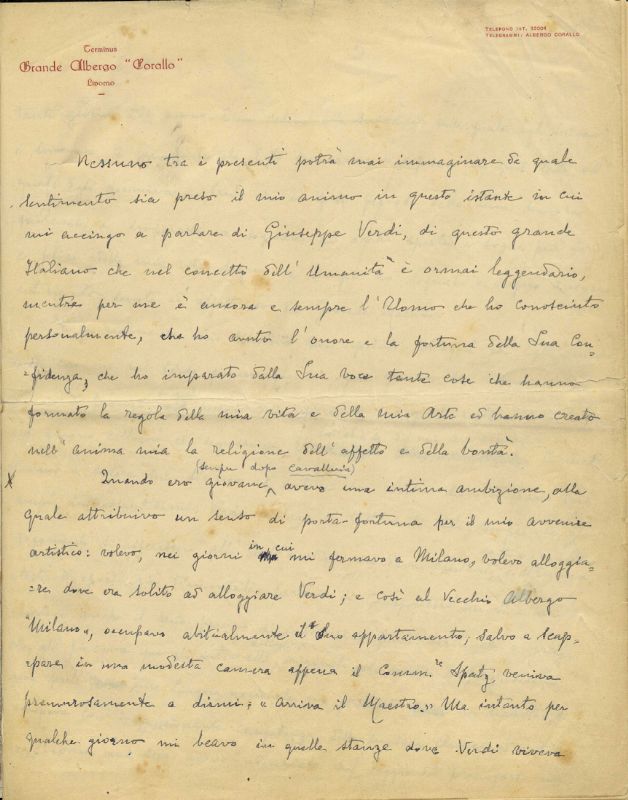 Terminus
Grande Albergo "Corallo"
Livorno
TELEFONO INT. 32004
TELEGRAMMI: ALBERGO CORALLO
Nessuno tra i presenti potrà mai immaginare da quale
sentimento sia preso il mio animo in questo istante in cui
mi accingo a parlare di Giuseppe Verdi, di questo grande
Italiano che nel concetto dell'Umanità è ormai leggendario,
mentre per me è ancora e sempre l'Uomo che ho conosciuto
personalmente, che ho avuto l'onore e la fortuna della Sua Con=
=fidenza, che ho imparato dalla Sua voce tante cose che hanno
formato la regola della mia vita e della mia Arte ed hanno creato
nell'anima mia la religione dell'affetto e della bontà.
(sempre dopo Cavalleria)
x Quando ero giovane, avevo una intima ambizione, alla
quale attribuivo un senso di porta-fortuna per il mio avvenire
artistico: volevo, nei giorni in cui mi fermavo a Milano, volevo alloggia=
=re dove era solito ad alloggiare Verdi; e così al Vecchio Albergo
"Milano", occupavo abitualmente il Suo appartamento; salvo a scap=
=pare in una modesta camera appena il Comm.re Spatz veniva
premurosamente a dirmi: "Arriva il Maestro." Ma intanto per
qualche giorno mi beavo in quelle stanze dove Verdi viveva